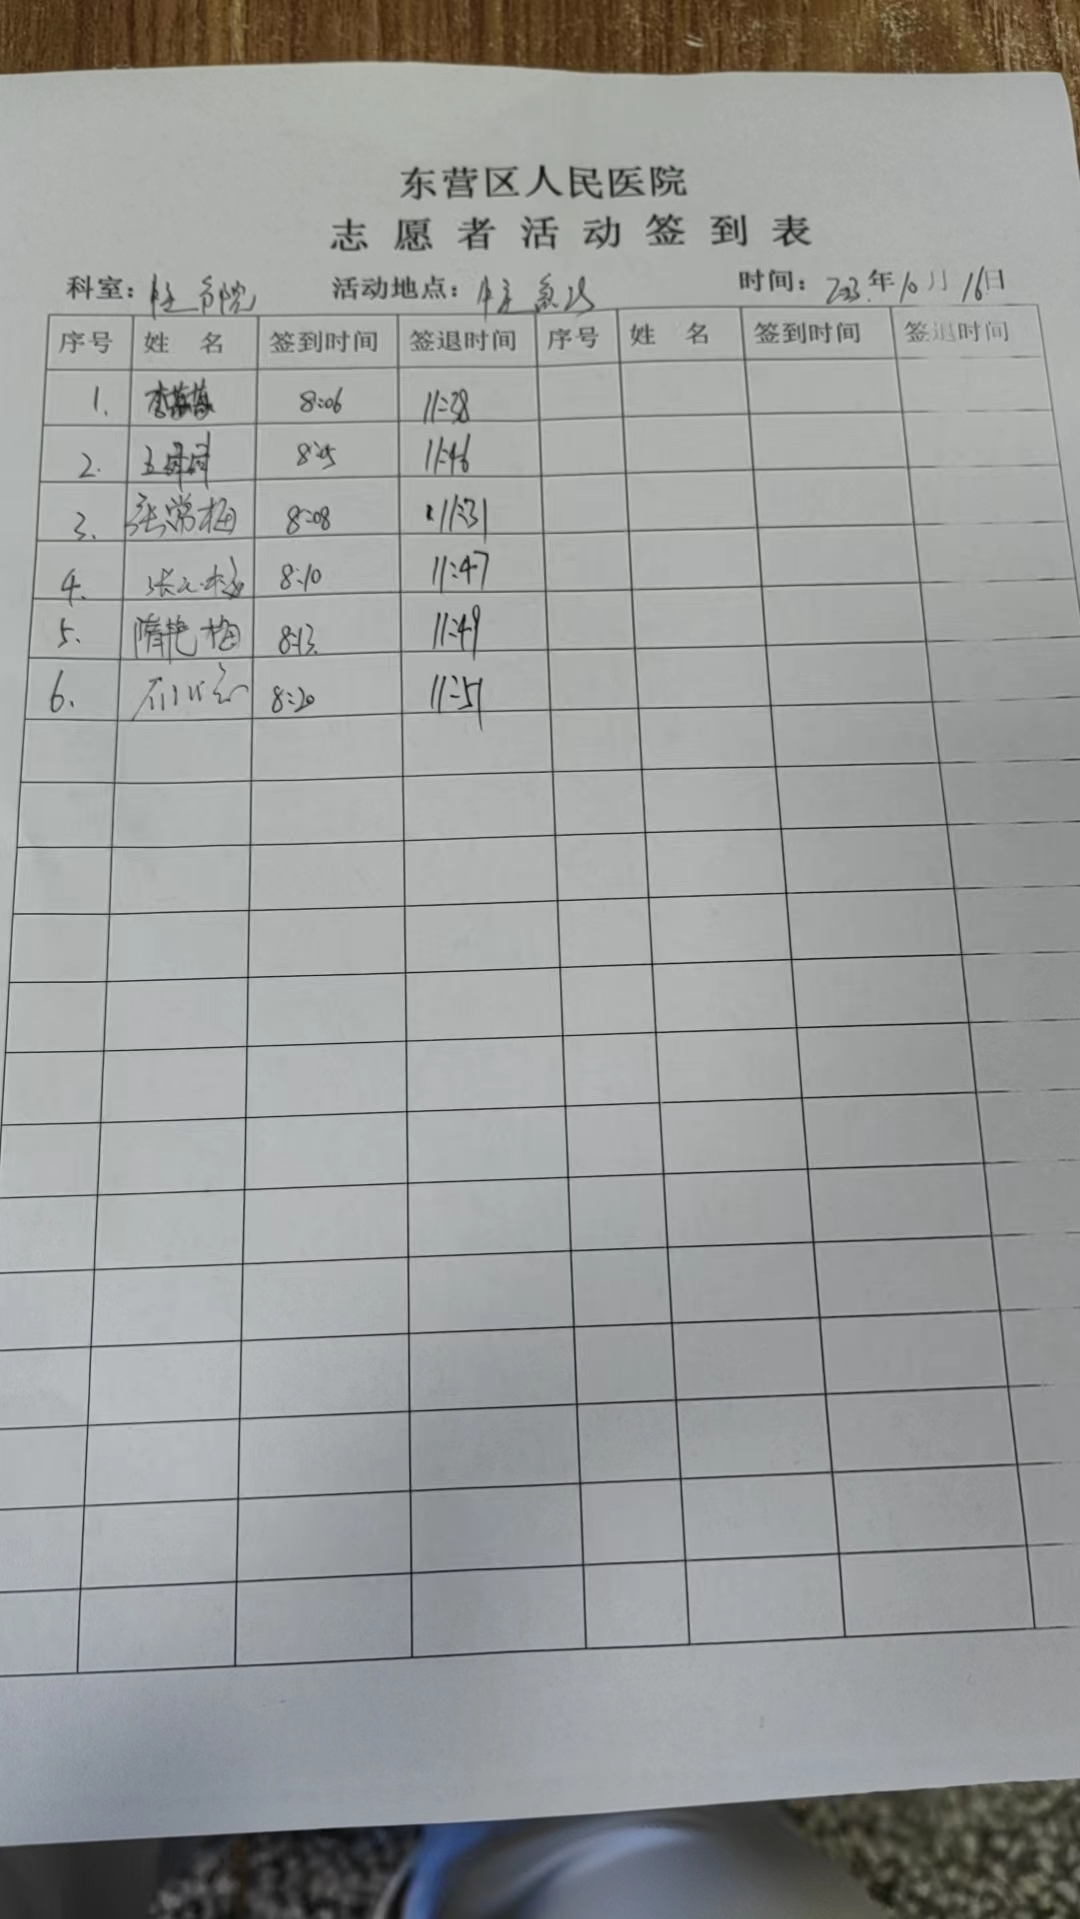 东营区人民医院
志愿者活动签到表
科室： 活动地点： 时间：2023年10月16日
序号 姓名 签到时间 签退时间 序号 姓名 签到时间 签退时间
1. 李 8:06 11:28
2. 8:05 11:46
3. 张常梅 8:08 11:31
4. 张 8:10 11:47
5. 隋艳梅 8:13 11:49
6. 8:20 11:51